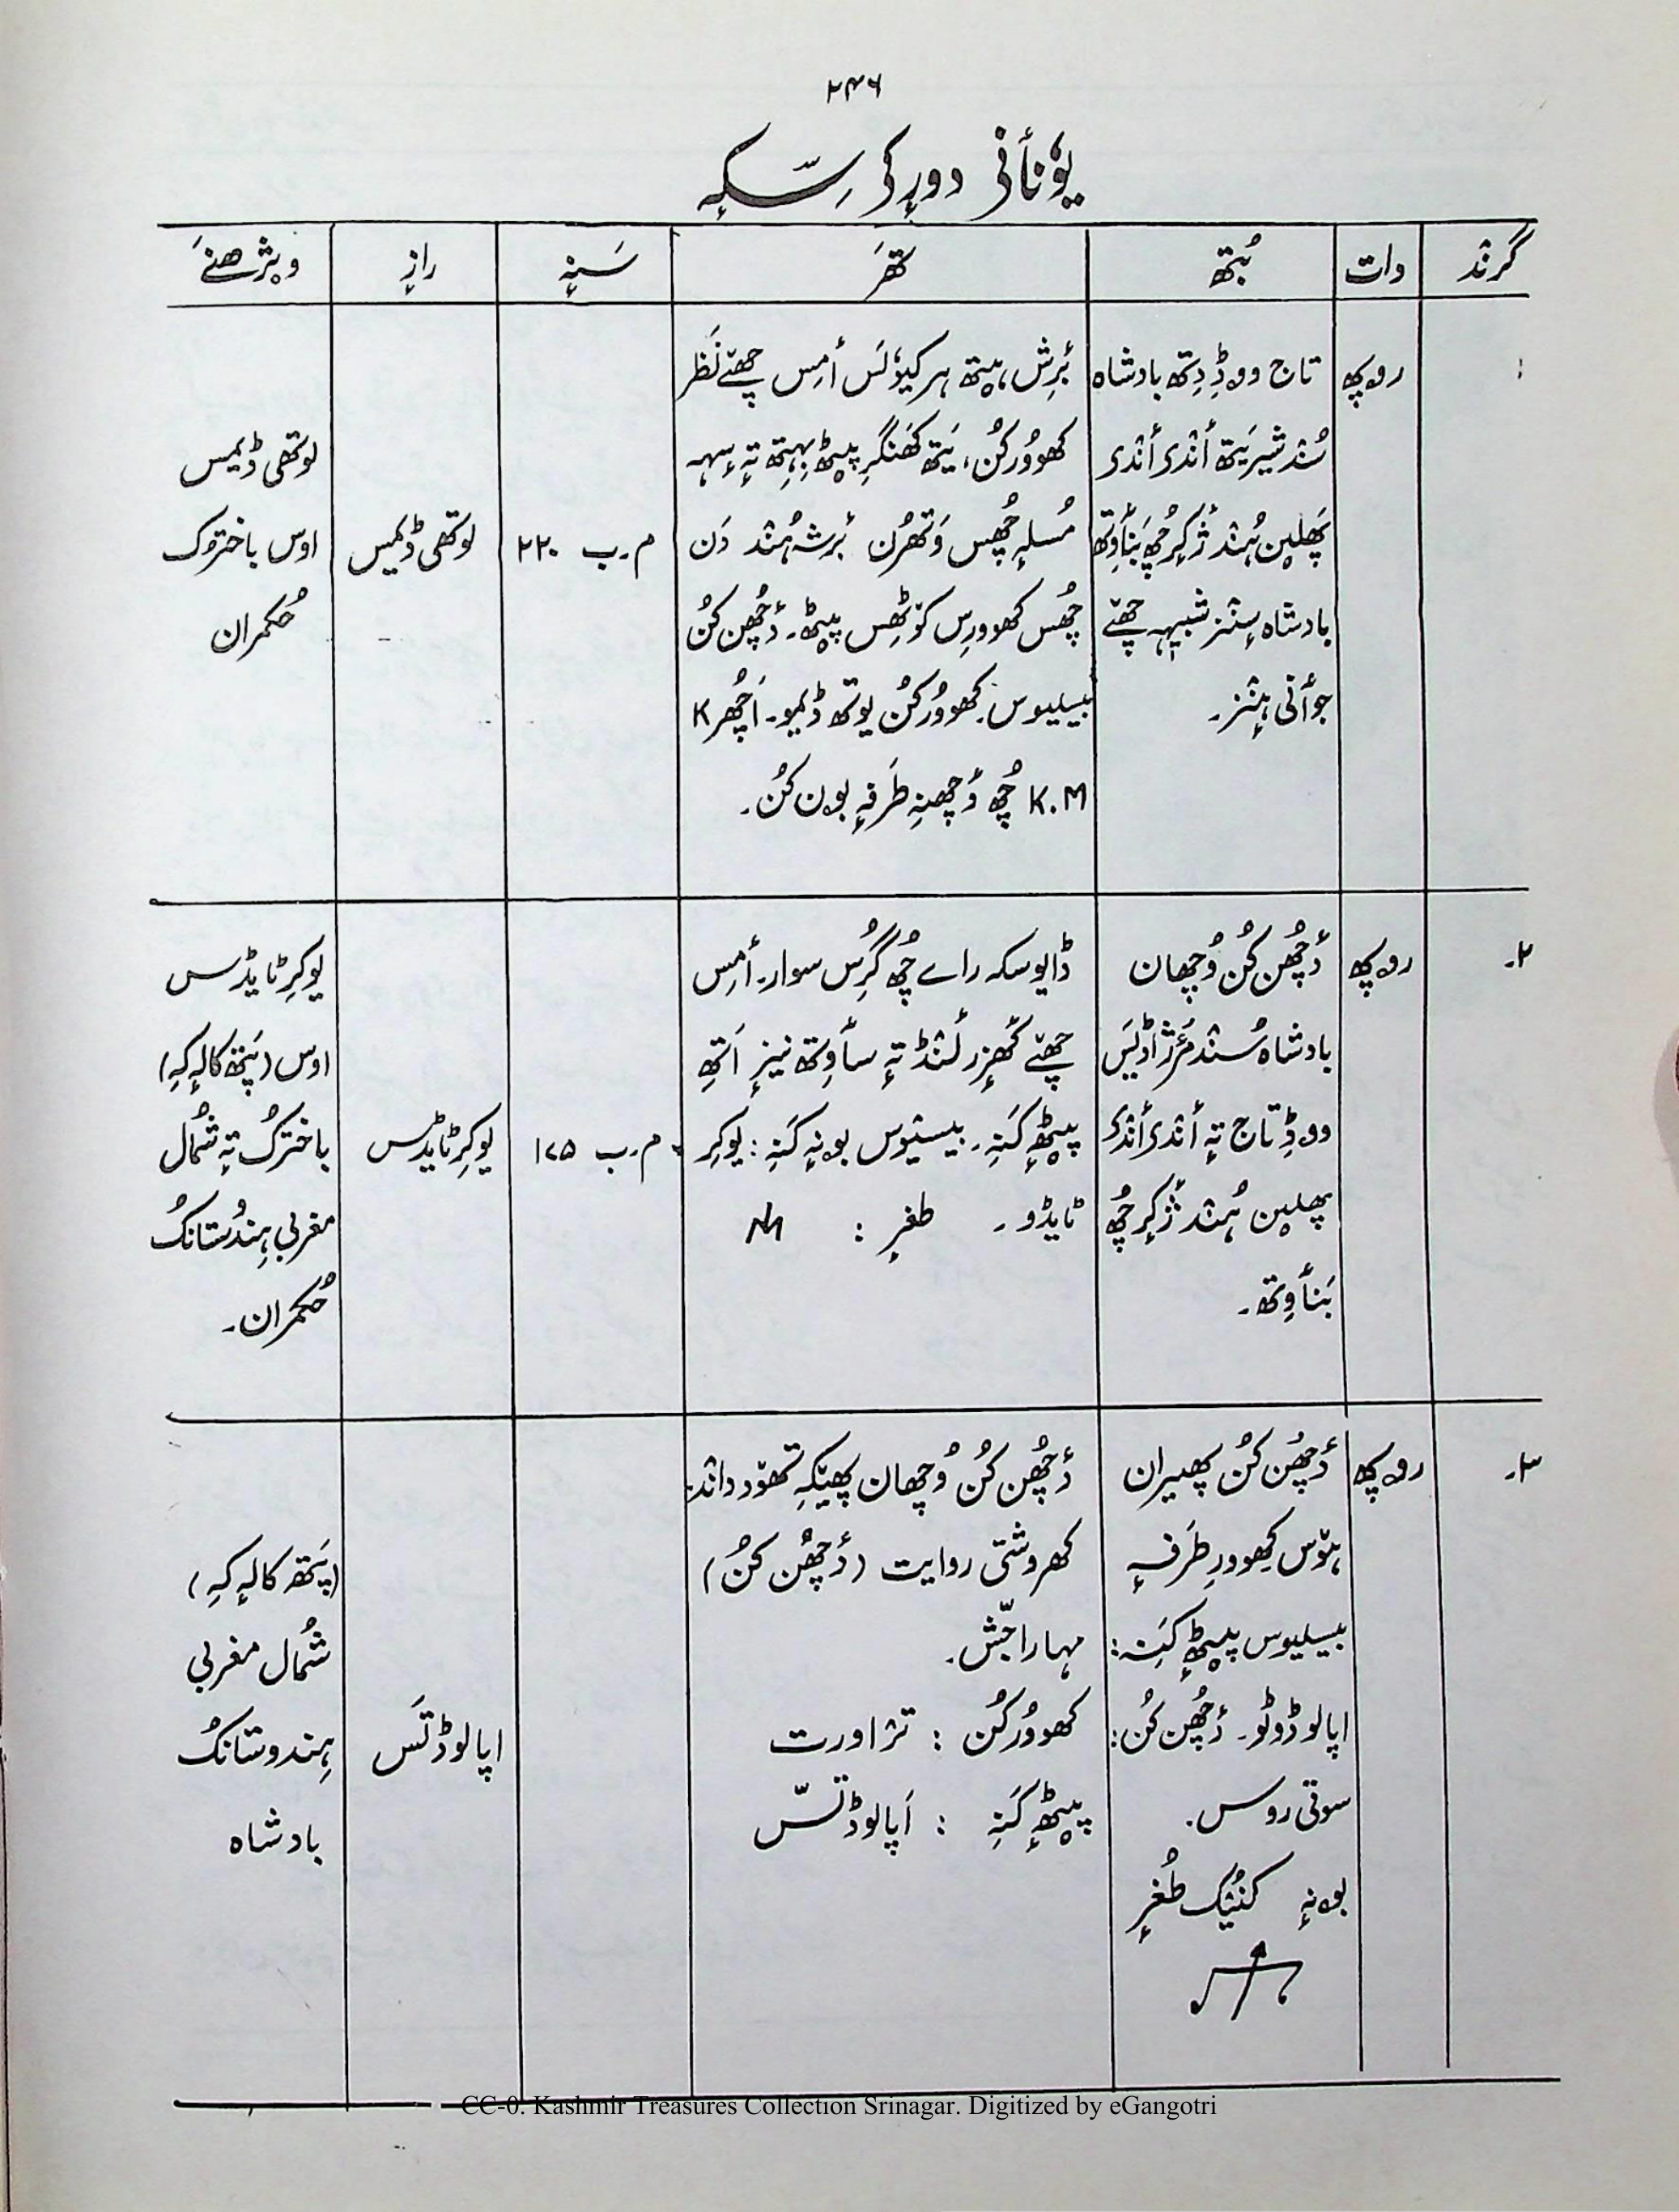 ۲۴۶
یوٗنٲنی دورٕکی سِکہٕ
گرٛند
وات
بُتھ
تھَر
سَنہٕ
رازٕ
ویژھنَے
۱
روپھ
تاج ووڈِ دِتھ بادشاہ
سُند شیر یَتھ أندی أندی
پھَلین ہُند ژٔکِر چھُ بَنٲوِتھ
بادشاہ سٕنز شبیہہ چھےٚ
جوٲنی ہٕنز۔
بٔرِش ہیتھ ہر کیوٗلَس أمِس چھےٚ نَظر
کھوٚوُر کُن، یَتھ کھَنگرِ پیٹھ بِہِتھ تہٕ سہہ
مُسلہٕ چھُس وَتھرُن بٔرشہ ہُند دَن
چھُس کھووٕرِس کوٚٹھِس پیٹھ۔ دٔچھُن کُن
بیسلیوس۔ کھووُر کُن یوتھ ڈیمو۔ اَچھر K
K.M چھُ دٔچھنہِ طَرفہٕ بون کُن۔
م۔ب ۲۲۰
لوتھی ڈیمس
لوتھی ڈیمس
اوس باختروٗک
حُکمران
۲۔
روپھ
دٔچھُن کُن وُچھان
بادشاہ سُند مٔرژ اڈلیَس
ووڈِ تاج تہٕ أندی أندی
پھلین ہُند ژٔکِر چھُ
بَنٲوِتھ۔
ڈایوسکہ راے چھُ گُرِس سوار۔ أمِس
چھےٚ کھٔزر لٔنڈ تہٕ سٲوِتھ نیزٕ اَتھِ
پیٹھٕ کَنہِ۔ بیسیٚوس بونہٕ کَنہِ: یوکرِ
ٹایڈو۔ طغرٕ :
م۔ب ۱۷۵
یوکرِٹایڈِس
یوکرِٹایڈِس
اوس (پَتھ کالہٕ کہِ)
باخترُک تہٕ شُمال
مغربی ہِندُستانُک
حُکمران۔
۳۔
روپھ
دٔچھُن کُن پھیران
ہوٚس کھووٕرِ طَرفہٕ
بیسلیوس پیٹھٕ کَنہِ:
اپالوڈوٹو۔ دٔچھُن کُن:
سوتی روس۔
بونہٕ کنیُک طُغرٕ
دٔچھُن کُن وُچھان پھیٚکہِ تھوٚد داند۔
کھروشتی روایت (دٔچھُن کُن)
مہاراجَّس۔
کھووُر کُن : تراورت
پیٹھٕ کَنہِ : اَپالوڈتسّ
اپالوڈتَس
(پَتھ کالہٕ کہِ)
شُمال مغربی
ہِندوستانُک
بادشاہ
CC-0. Kashmir Treasures Collection Srinagar. Digitized by eGangotri